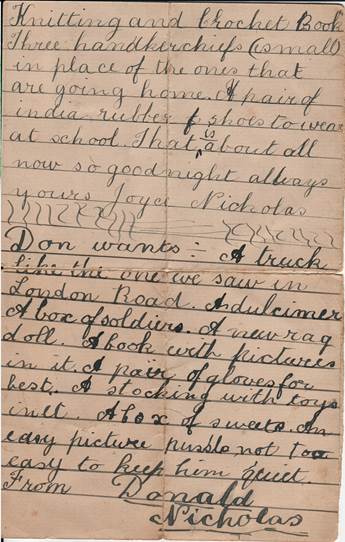 Knitting and Crochet Book
Three handkerchiefs (small)
in place of the ones that
are going home. A pair of
india rubber shoes to wear
at school. That is about all
now so goodnight always
yours Joyce Nicholas
Don wants:- A truck
like the one we saw in
London Road. A dulcimer
A box of soldiers. A new rag
doll. A book with pictures
in it. A pair of gloves for
best. A stocking with toys
in it. A box of sweets. An
easy picture pussle not too
easy to keep him quiet.
From Donald
Nicholas